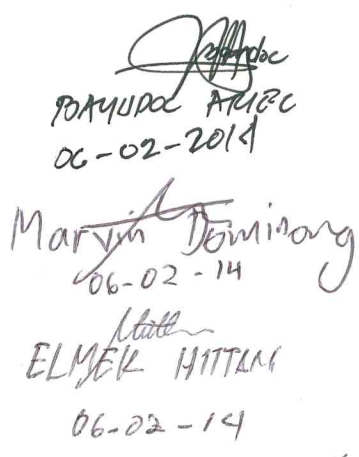 BAYUDOC ARIEC
06-02-2014
Marvin Dominong
06-02-14
ELMER HITTANG
06-02-14